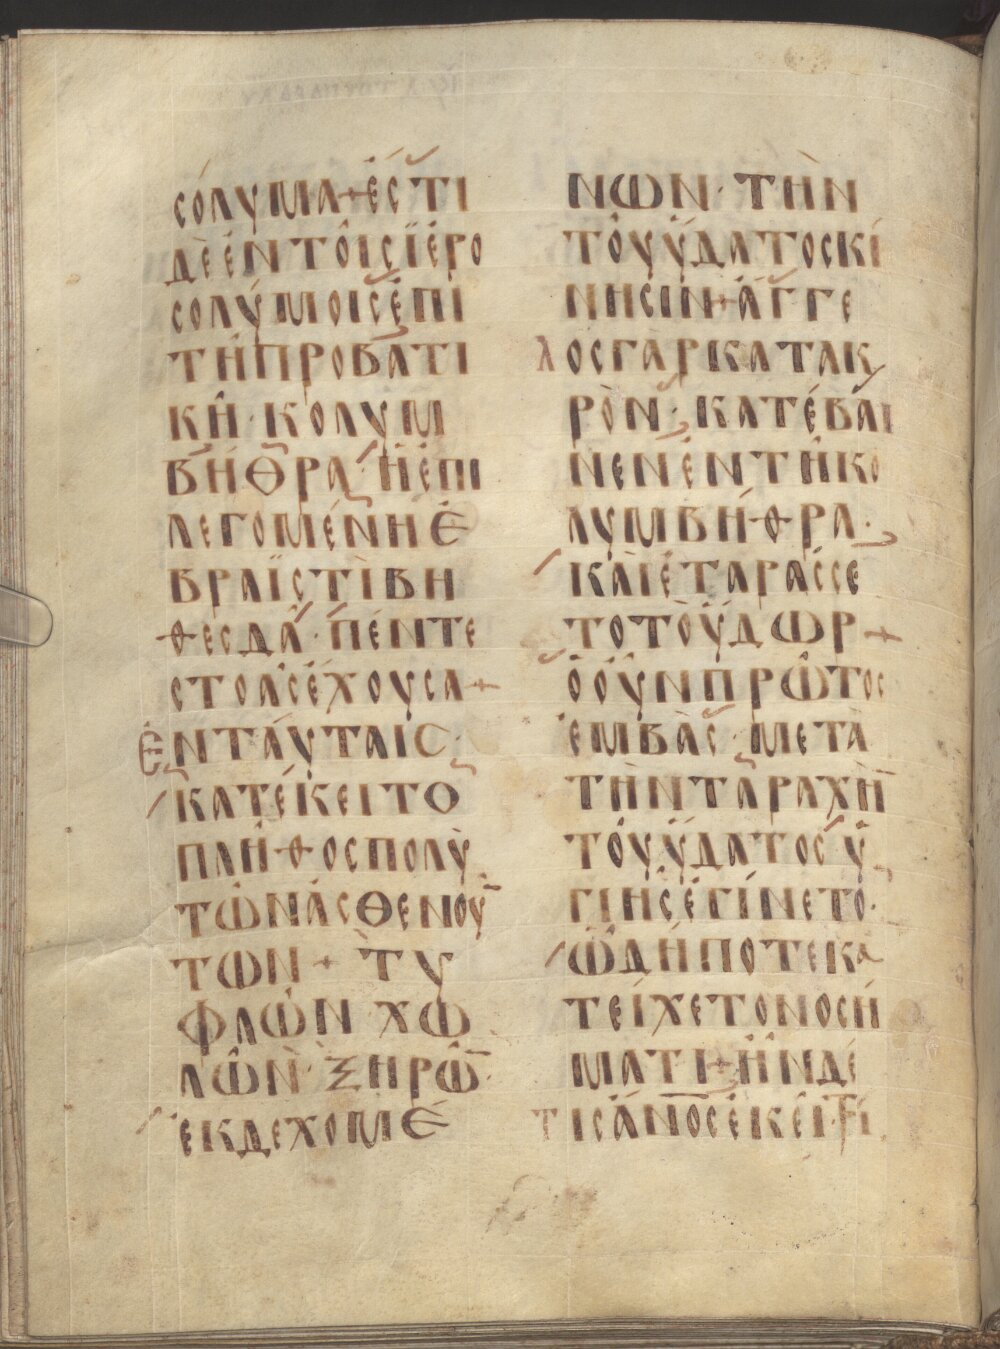 σόλυμα + ἔστι
δὲ ἐν τοῖς ϊερο
σολύμοις ἐπὶ
τῇ προβατι
κῇ · κολυμ
βήθρα · ἡ ἐπι
λεγομένη ἑ
βραϊστὶ βη
θεσδά · πέντε
στοὰς ἔχουσα +
Ἐν ταύταις ·
κατέκειτο
πλῆθος πολὺ
τῶν ἀσθενού
των + τυ
φλῶν · χω
λῶν · ξηρῶ̅
ἐκδεχομέ
νων · τὴν
τοῦ ὕδατος κί
νησιν + ἄγγε
λος γὰρ κατακ
ρὸν · κατέβαι
νεν ἐν τῇ κο
λυμβήθρα ·
καὶ ἐταράσσε
το τὸ ὕδωρ +
ὁ οὖν πρῶτος
ἐμβὰς · μετὰ
τὴν ταραχὴν
τοῦ ὕδατος ὑ
γιὴς ἐγίνετο ·
ᾧ δήποτε κα
τείχετο νοσή
ματι + ἦν δέ
τις ἄνο̅ς ἐκεῖ · τρί